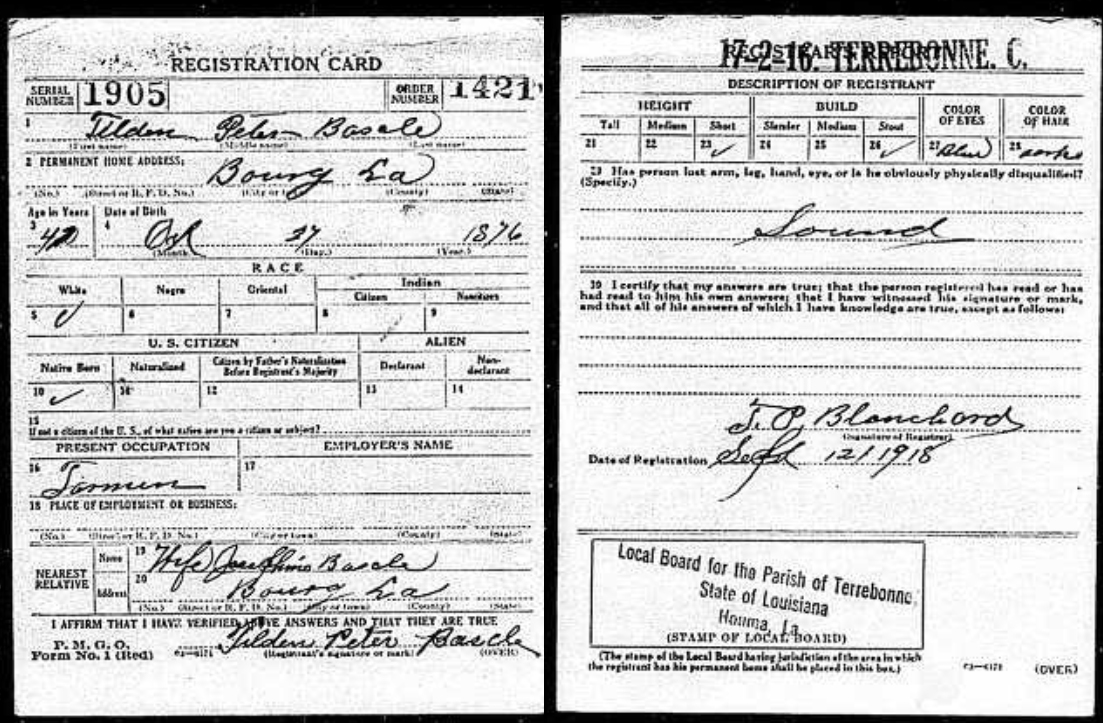 REGISTRATION CARD
SERIAL NUMBER 1905 ORDER NUMBER 1421
1 Tilden Peter Bascle
(First name) (Middle name) (Last name)
2 PERMANENT HOME ADDRESS:
Bourg La
(No.) (Street or R. F. D. No.) (City or town) (County) (State)
Age in Years Date of Birth
3 4 Oct 27 1876
(Month) (Day.) (Year.)
RACE
White Negro Oriental Indian
Citizen
5 ✓ 6 7 8 9
U. S. CITIZEN ALIEN
Native Born Naturalized Citizen by Father's Naturalization Before Registrant's Majority Declarant Non-declarant
10 ✓ 12 13 14
15
If not a citizen of the U. S., of what nation are you a citizen or subject?
PRESENT OCCUPATION EMPLOYER'S NAME
16 17
18 PLACE OF EMPLOYMENT OR BUSINESS:
(No.) (Street or R. F. D. No.) (City or town) (County) (State)
NEAREST RELATIVE Name 19 Wife Josephine Bascle
Address 20 Bourg La
(No.) (Street or R. F. D. No.) (City or town) (County) (State)
I AFFIRM THAT I HAVE VERIFIED ABOVE ANSWERS AND THAT THEY ARE TRUE
P. M. G. O.
Form No. 1 (Red) 03—6171 Tilden Peter Bascle
(Registrant's signature or mark) (OVER)
17-2-16. TERREBONNE. C.
DESCRIPTION OF REGISTRANT
HEIGHT BUILD COLOR OF EYES COLOR OF HAIR
Tall Medium Short Slender Medium Stout
21 22 23 ✓ 24 25 26 ✓ 27 Blue 28
29 Has person lost arm, leg, hand, eye, or is he obviously physically disqualified?
(Specify.)
Sound
30 I certify that my answers are true; that the person registered has read or has
had read to him his own answers; that I have witnessed his signature or mark,
and that all of his answers of which I have knowledge are true, except as follows:
J. P. Blanchard
(Signature of Registrar)
Date of Registration Sept 12/1918
Local Board for the Parish of Terrebonne,
State of Louisiana
Houma, La.
(STAMP OF LOCAL BOARD)
(The stamp of the Local Board having jurisdiction of the area in which
the registrant has his permanent home shall be placed in this box.)
03—6171 (OVER)